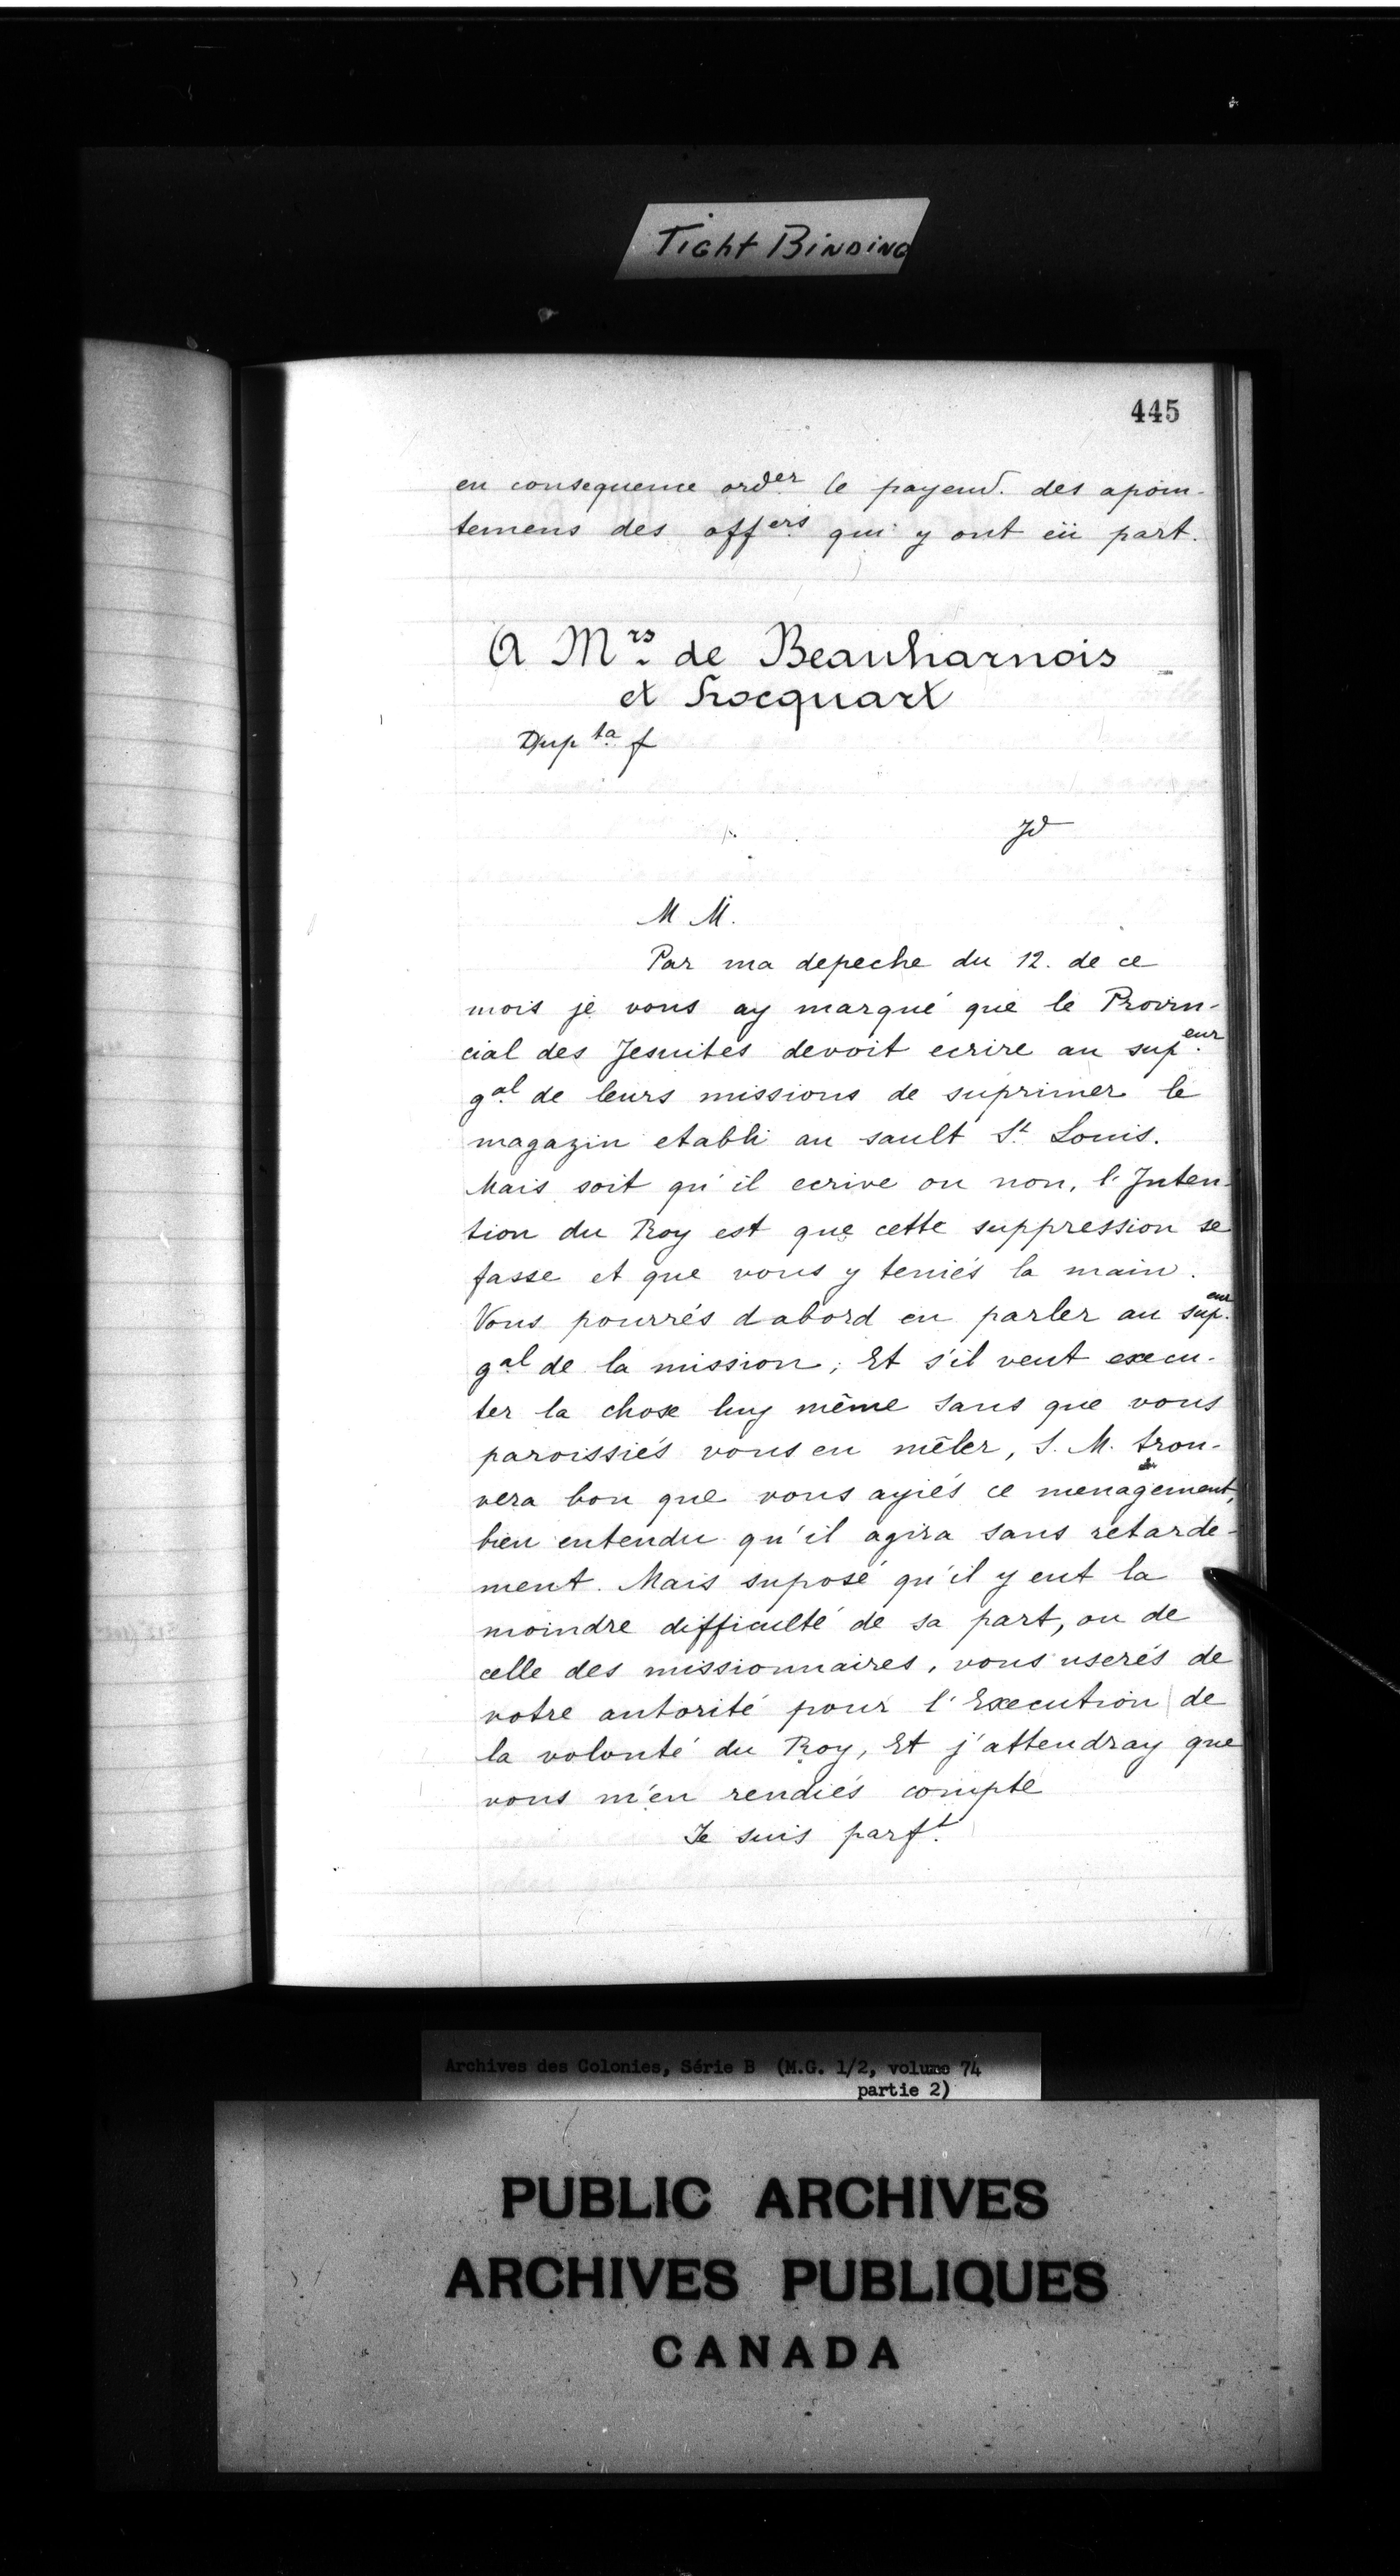 Tight Binding
445
en consequence ord.er le payemt. des apoin-
temens des off.ers qui y ont eü part.
A M.rs de Beauharnois
et Hocquart
Dup.ta
Jd
M M.
Par ma depeche du 12. de ce
mois je vous ay marqué que le Provin-
cial des Jesuites devoit ecrire au sup.eur
g.al de leurs missions de suprimer le
magazin etabli au sault St. Louis.
Mais soit qu'il ecrive ou non, l'Inten-
tion du Roy est que cette suppression se
fasse et que vous y teniés la main.
Vous pourrés d'abord en parler au sup.eur
gal de la mission; Et s'il veut execu-
ter la chose luy même sans que vous
paroissiés vous en mêler, S. M. trou-
vera bon que vous ayiés ce menagement,
bien entendu qu'il agira sans retarde-
ment. Mais suposé qu'il y eut la
moindre difficulté de sa part, ou de
celle des missionnaires, vous userés de
votre autorité pour l'Execution de
la volonté du Roy, Et j'attendray que
vous m'en rendiés compte
Je suis parf.t
Archives des Colonies, Série B (M.G. 1/2, volume 74
partie 2)
PUBLIC ARCHIVES
ARCHIVES PUBLIQUES
CANADA